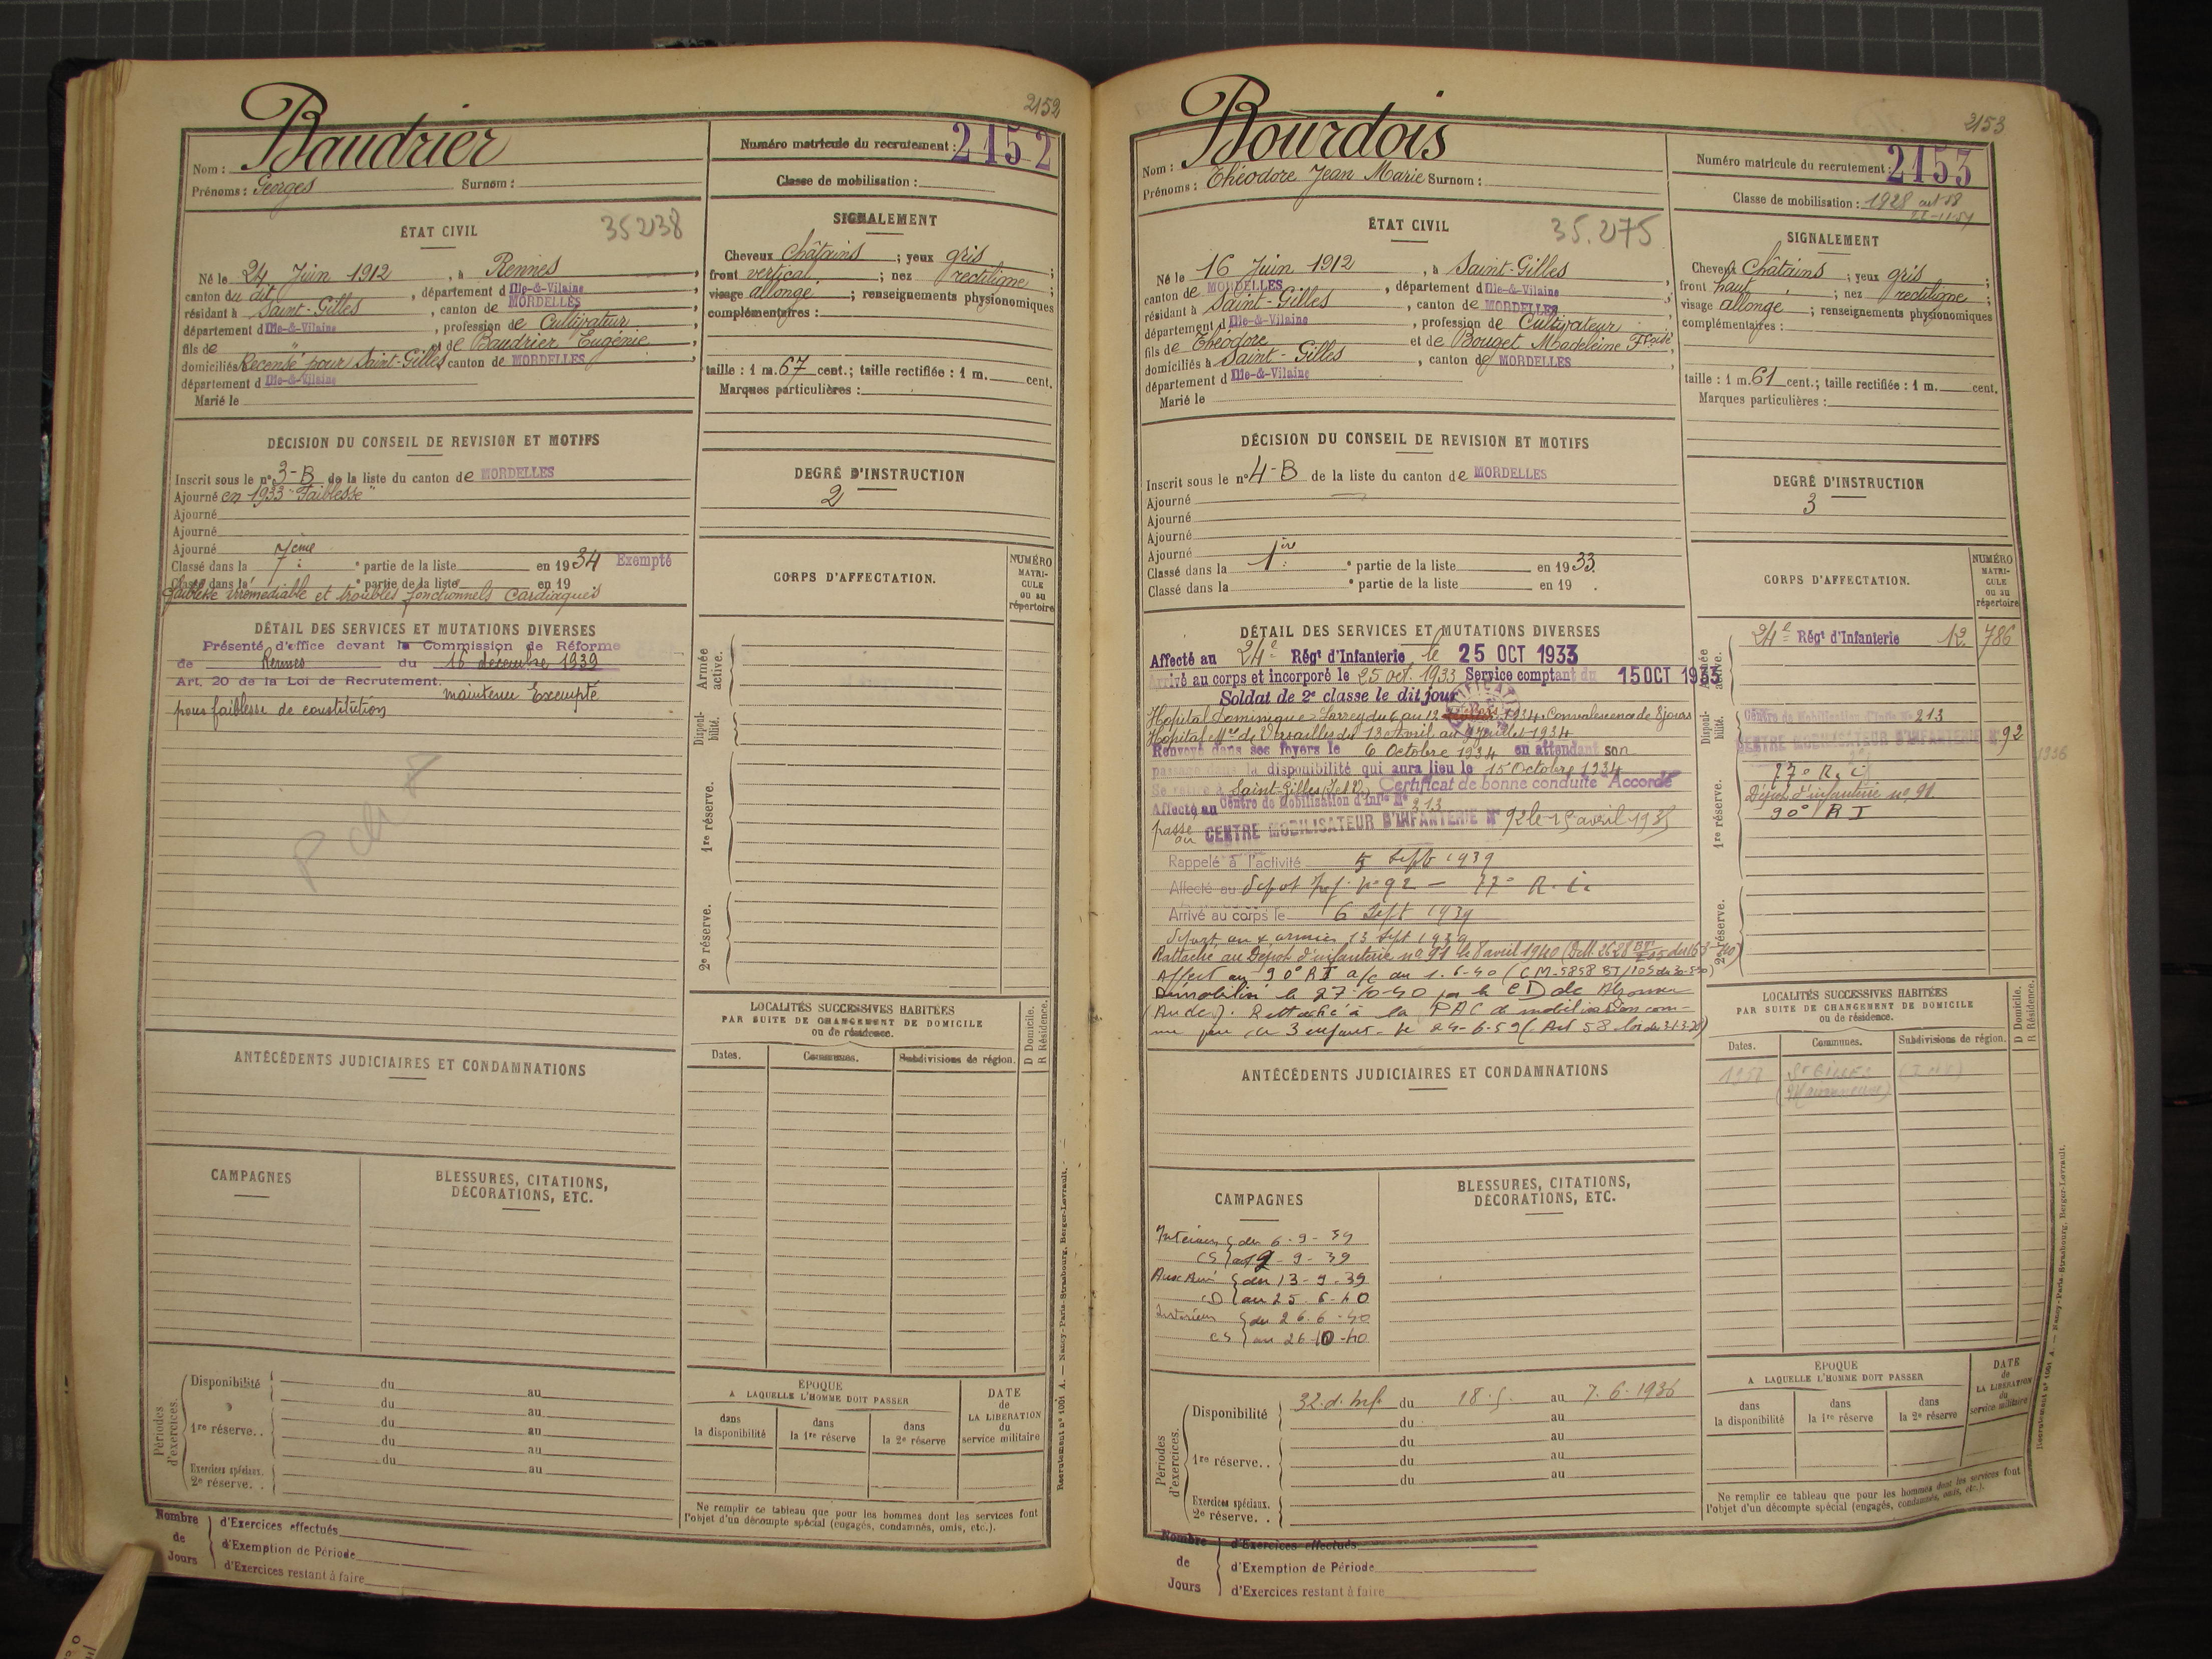 2152
Baudrier
Nom :
Prénoms : Georges Surnom :
Numéro matricule du recrutement : 2152
Classe de mobilisation :
ÉTAT CIVIL
35238
Né le 24 Juin 1912, à Rennes,
canton du dit, département d Ille-&-Vilaine,
résidant à Saint-Gilles, canton de MORDELLES,
département d Ille-&-Vilaine, profession de Cultivateur,
fils de " et de Baudrier Eugénie,
domiciliés Recensé pour Saint-Gilles, canton de MORDELLES,
département d Ille-&-Vilaine
Marié le
SIGNALEMENT
Cheveux châtains ; yeux gris ;
front vertical ; nez rectiligne ;
visage allongé ; renseignements physionomiques
complémentaires :
taille : 1 m. 67 cent.; taille rectifiée : 1 m. cent.
Marques particulières :
DÉCISION DU CONSEIL DE REVISION ET MOTIFS
Inscrit sous le n° 3-B de la liste du canton de MORDELLES
Ajourné en 1933 "Faiblesse"
Ajourné
Ajourné
Ajourné
Classé dans la 7ème partie de la liste en 1934 Exempté
Classé dans la ° partie de la liste en 19
faiblesse irrémédiable et troubles fonctionnels Cardiaques
DEGRÉ D'INSTRUCTION
2
CORPS D'AFFECTATION.
NUMÉRO
MATRI-
CULE
ou au
répertoire
DÉTAIL DES SERVICES ET MUTATIONS DIVERSES
Présenté d'office devant la Commission de Réforme
de Rennes du 16 décembre 1939
Art. 20 de la Loi de Recrutement. maintenu Exempté
pour faiblesse de constitution
Armée
active.
Disponi-
bilité.
1re réserve.
2e réserve.
LOCALITÉS SUCCESSIVES HABITÉES
PAR SUITE DE CHANGEMENT DE DOMICILE
ou de résidence.
D Domicile.
R Résidence.
Dates.
Communes.
Subdivisions de région.
ANTÉCÉDENTS JUDICIAIRES ET CONDAMNATIONS
CAMPAGNES
BLESSURES, CITATIONS,
DÉCORATIONS, ETC.
Périodes
d'exercices.
Disponibilité du au
du au
1re réserve. . du au
du au
Exercices spéciaux. du au
2e réserve. .
ÉPOQUE
A LAQUELLE L'HOMME DOIT PASSER
dans
la disponibilité
dans
la 1re réserve
dans
la 2e réserve
DATE
de
LA LIBÉRATION
du
service militaire
Ne remplir ce tableau que pour les hommes dont les services font
l'objet d'un décompte spécial (engagés, condamnés, omis, etc.).
Recrutement n° 1001 A. — Nancy-Paris-Strasbourg, Berger-Levrault.
Nombre
de
Jours
d'Exercices effectués
d'Exemption de Période
d'Exercices restant à faire
2153
Bourdois
Nom :
Prénoms : Théodore Jean Marie Surnom :
Numéro matricule du recrutement : 2153
Classe de mobilisation : 1928 art 58
ÉTAT CIVIL
35.275
Né le 16 Juin 1912, à Saint-Gilles
canton de MORDELLES, département d Ille-&-Vilaine,
résidant à Saint-Gilles, canton de MORDELLES,
département d Ille-&-Vilaine, profession de Cultivateur,
fils de Théodore et de Bouget Madeleine Fçoise
domiciliés à Saint-Gilles, canton de MORDELLES,
département d Ille-&-Vilaine
Marié le
SIGNALEMENT
Cheveux châtains ; yeux gris ;
front haut ; nez rectiligne ;
visage allongé ; renseignements physionomiques
complémentaires :
taille : 1 m. 61 cent.; taille rectifiée : 1 m. cent.
Marques particulières :
DÉCISION DU CONSEIL DE REVISION ET MOTIFS
Inscrit sous le n° 4-B de la liste du canton de MORDELLES
Ajourné
Ajourné
Ajourné
Ajourné
Classé dans la 1ère partie de la liste en 1933.
Classé dans la ° partie de la liste en 19 .
DEGRÉ D'INSTRUCTION
3
CORPS D'AFFECTATION.
NUMÉRO
MATRI-
CULE
ou au
répertoire
DÉTAIL DES SERVICES ET MUTATIONS DIVERSES
Affecté au 24e Régt d'Infanterie, le 25 OCT 1933
Arrivé au corps et incorporé le 25 oct. 1933 Service comptant du 15 OCT 1933
Soldat de 2e classe le dit jour
Hopital Dominique-Larrey du 6 au 12 1934. Convalescence de 8 jours
Hopital de Versailles du 13 Avril au Juillet 1934
Renvoyé dans ses foyers le 6 Octobre 1934 en attendant son
passage dans la disponibilité qui aura lieu le 15 Octobre 1934
Se retire à Saint-Gilles (I et V) Certificat de bonne conduite Accordé
Affecté au Centre de Mobilisation d'Infie N° 213
passe au CENTRE MOBILISATEUR D'INFANTERIE N° 92 le 15 avril 1935
Rappelé à l'activité 5 Sept 1939
Affecté au dépot Inf. n° 92 — 77e R.i.
Arrivé au corps le 6 Sept 1939
départ aux armées 13 Sept 1939
Rattaché au Dépot d'infanterie n° 91 le 8 avril 1940
Affect au 90e RI a/c du 1.6-40 (C.M. 5858 BT/105 du 30-5-40)
Démobilisé le 27-10-40 par le CD de
(Aude). Rattaché à la PAC de mobilisation com-
me père de 3 enfants le 24-6-59 (Art 58 loi du 31.3.28)
Armée
active.
24e Régt d'Infanterie 12 786
Disponi-
bilité.
Centre de Mobilisation d'Infie N° 213
CENTRE MOBILISATEUR D'INFANTERIE N° 92
1936
1re réserve.
77e R.i
Dépot d'infanterie n° 91
90e RI
2e réserve.
LOCALITÉS SUCCESSIVES HABITÉES
PAR SUITE DE CHANGEMENT DE DOMICILE
ou de résidence.
D Domicile.
R Résidence.
Dates.
Communes.
Subdivisions de région.
St Gilles (I et V)
ANTÉCÉDENTS JUDICIAIRES ET CONDAMNATIONS
CAMPAGNES
BLESSURES, CITATIONS,
DÉCORATIONS, ETC.
Intérieur du 6-9-39
CS au 12-9-39
Aux Armées du 13-9-39
CD au 25.6-40
Intérieur du 26.6-40
CS au 26-10-40
Périodes
d'exercices.
Disponibilité 32.d.inf. du 18.5. au 7.6.1936
du au
1re réserve. . du au
du au
du au
Exercices spéciaux.
2e réserve. .
ÉPOQUE
A LAQUELLE L'HOMME DOIT PASSER
dans
la disponibilité
dans
la 1re réserve
dans
la 2e réserve
DATE
de
LA LIBÉRATION
du
service militaire
Ne remplir ce tableau que pour les hommes dont les services font
l'objet d'un décompte spécial (engagés, condamnés, omis, etc.).
Recrutement n° 1001 A. — Nancy-Paris-Strasbourg, Berger-Levrault.
Nombre
de
Jours
d'Exercices effectués
d'Exemption de Période
d'Exercices restant à faire